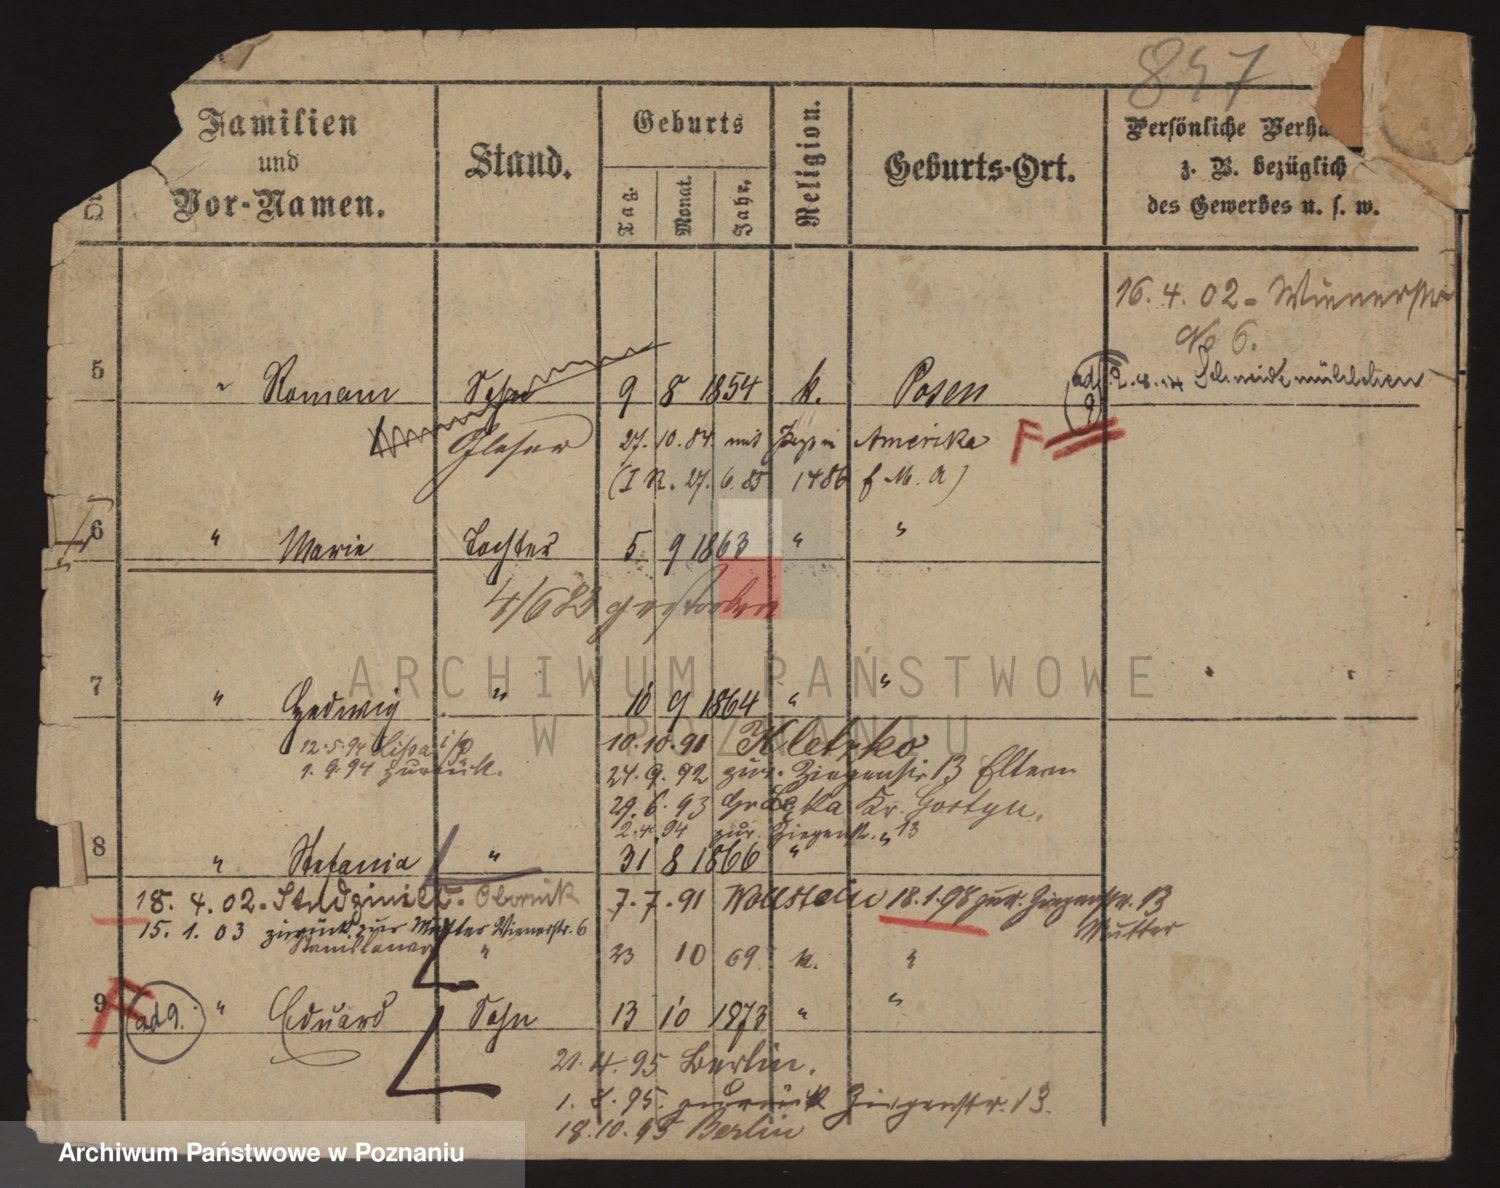 847
Familien und Vor-Namen.
Stand.
Geburts
Tag. Monat. Jahr.
Religion.
Geburts-Ort.
Persönliche Verhä
z. B. bezüglich
des Gewerbes u. s. w.
16. 4. 02 = Wienerstr
No 6.
5 " Roman Sohn 9 8 1854 k. Posen
ad 9 2. 8. 14 Schneidemühlchen
Glaser 27. 10. 84 mit in Amerika F
(I R. 27. 6. 85 1486 f M. A)
6 " Marie Tochter 5 9 1863 " "
4/6 83 gestorben
7 " Hedwig " 16 9 1864 " "
12. 5. 94 Lissa i/p
1. 9. 94 zurück.
10. 10. 91 Kletzko
24. 9. 92 zur. Ziegenstr 13 Eltern
29. 6. 93 Kr. Gostyn.
2. 4. 94 zur. Ziegenstr. 13
8 " Stefania " 31 8 1866 " "
18. 4. 02 = Obornik
7. 7. 91 Wollstein 18. 1. 98 zur. Ziegenstr. 13
Mutter
15. 1. 03 zurück zur Mutter Wienerstr. 6
Stanislawa " 23 10 69 k. "
9 F ad 9. " Eduard Sohn 13 10 1873 " "
21. 4. 95 Berlin.
1. 8. 95. zurück Ziegenstr. 13.
18. 10. 95 Berlin
ARCHIWUM PAŃSTWOWE
W POZNANIU
Archiwum Państwowe w Poznaniu